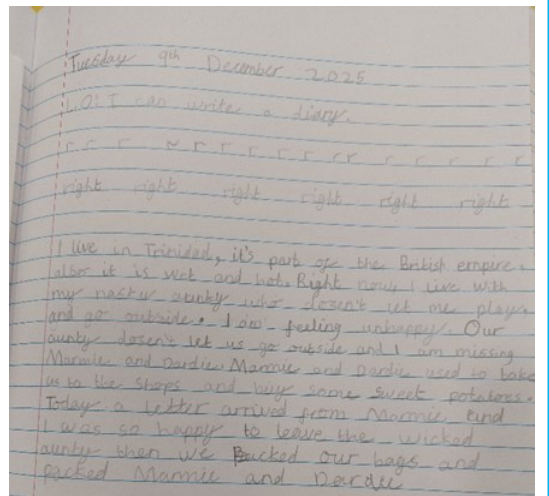 Tuesday 9th December 2025
L.O: I can write a diary.
r r r r r r r r r rr r r r r r
right right right right right right
I live in Trinidad, it's part of the British empire.
also it is wet and hot. Right now, I live with
my nasty aunty who dosen't let me play,
and go outside. I am feeling unhappy. Our
aunty dosen't let us go outside and I am missing
Marmie and Dardie. Marmie and Dardie used to take
us to the shops and buy some sweet potatoes.
Today a letter arrived from Marmie and
I was so happy to leave the wicked
aunty then we Packed our bags and
packed Marmie and Dardie